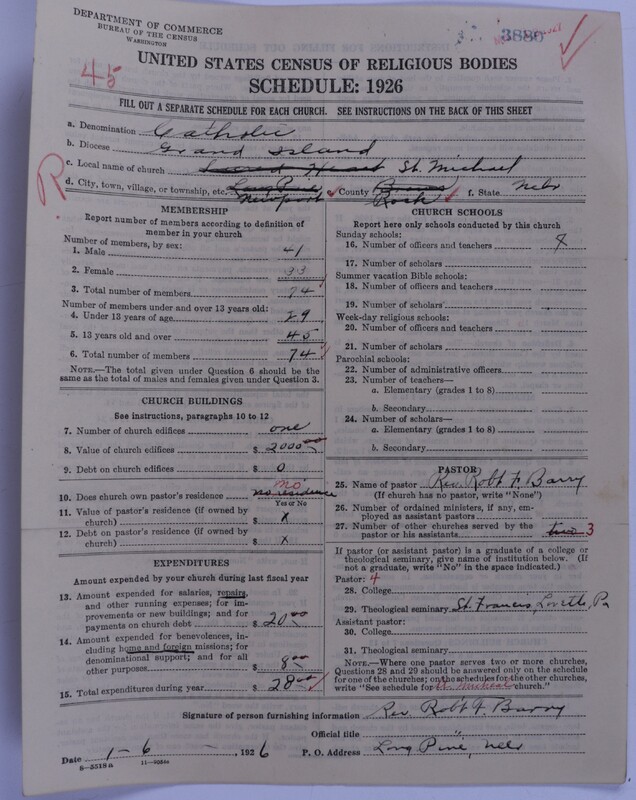 DEPARTMENT OF COMMERCE
BUREAU OF THE CENSUS
WASHINGTON
3886
45
UNITED STATES CENSUS OF RELIGIOUS BODIES
SCHEDULE: 1926
FILL OUT A SEPARATE SCHEDULE FOR EACH CHURCH. SEE INSTRUCTIONS ON THE BACK OF THIS SHEET
a. Denomination Catholic
b. Diocese Grand Island
c. Local name of church Sacred Heart St. Michael
R.
d. City, town, village, or township, etc. Long Pine Newport County Brown Rock f. State Nebr
MEMBERSHIP
Report number of members according to definition of
member in your church
Number of members, by sex:
1. Male 41
2. Female 33
3. Total number of members 74
Number of members under and over 13 years old:
4. Under 13 years of age 29
5. 13 years old and over 45
6. Total number of members 74
NOTE.—The total given under Question 6 should be
same as the total of males and females given under Question 3.
CHURCH BUILDINGS
See instructions, paragraphs 10 to 12
7. Number of church edifices one
8. Value of church edifices $ 2000 00
9. Debt on church edifices $ 0
no
10. Does church own pastor's residence no residence
Yes or No
11. Value of pastor's residence (if owned by
church) $ X
12. Debt on pastor's residence (if owned by
church) $ X
EXPENDITURES
Amount expended by your church during last fiscal year
13. Amount expended for salaries, repairs,
and other running expenses; for im-
provements or new buildings; and for
payments on church debt $ 20 00
14. Amount expended for benevolences, in-
cluding home and foreign missions; for
denominational support; and for all
other purposes $ 8 00
15. Total expenditures during year $ 28 00
CHURCH SCHOOLS
Report here only schools conducted by this church
Sunday schools:
16. Number of officers and teachers
17. Number of scholars
Summer vacation Bible schools:
18. Number of officers and teachers
19. Number of scholars
Week-day religious schools:
20. Number of officers and teachers
21. Number of scholars
Parochial schools:
22. Number of administrative officers
23. Number of teachers—
a. Elementary (grades 1 to 8)
b. Secondary
24. Number of scholars—
a. Elementary (grades 1 to 8)
b. Secondary
PASTOR
25. Name of pastor Rev. Robt F. Barry
(If church has no pastor, write "None")
26. Number of ordained ministers, if any, em-
ployed as assistant pastors
27. Number of other churches served by the
pastor or his assistants two 3
If pastor (or assistant pastor) is a graduate of a college or
theological seminary, give name of institution below. (If
not a graduate, write "No" in the space indicated.)
Pastor: 4
28. College
29. Theological seminary St. Francis, Loretto, Pa
Assistant pastor:
30. College
31. Theological seminary
NOTE.—Where one pastor serves two or more churches,
Questions 28 and 29 should be answered only on the schedule
for one of the churches; on the schedules for the other churches,
write "See schedule for St. Micheal church."
Signature of person furnishing information Rev. Robt F. Barry
Official title "
Date 1-6, 1926 P. O. Address Long Pine, Nebr
8-5518a